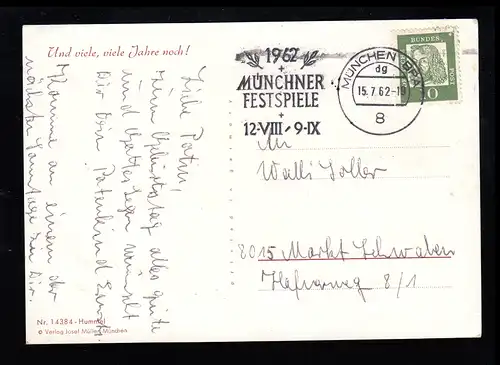 Und viele, viele Jahre noch!
Liebe Patin,
zum Geburtstag alles Gute
und Gottes Segen wünscht
Dir Dein Patenkind
Komme an einem der
nächsten Samstage zu Dir.
Nr. 14384 - Hummel
© Verlag Josef Müller, München
1962
+
MÜNCHNER
FESTSPIELE
+
12·VIII-9·IX
MÜNCHEN BPA
dg
15.7.62-19
8
DEUTSCHE
BUNDESPOST
10
An
Walli Soller
8015 Markt Schwaben
Hafnerweg 8/1